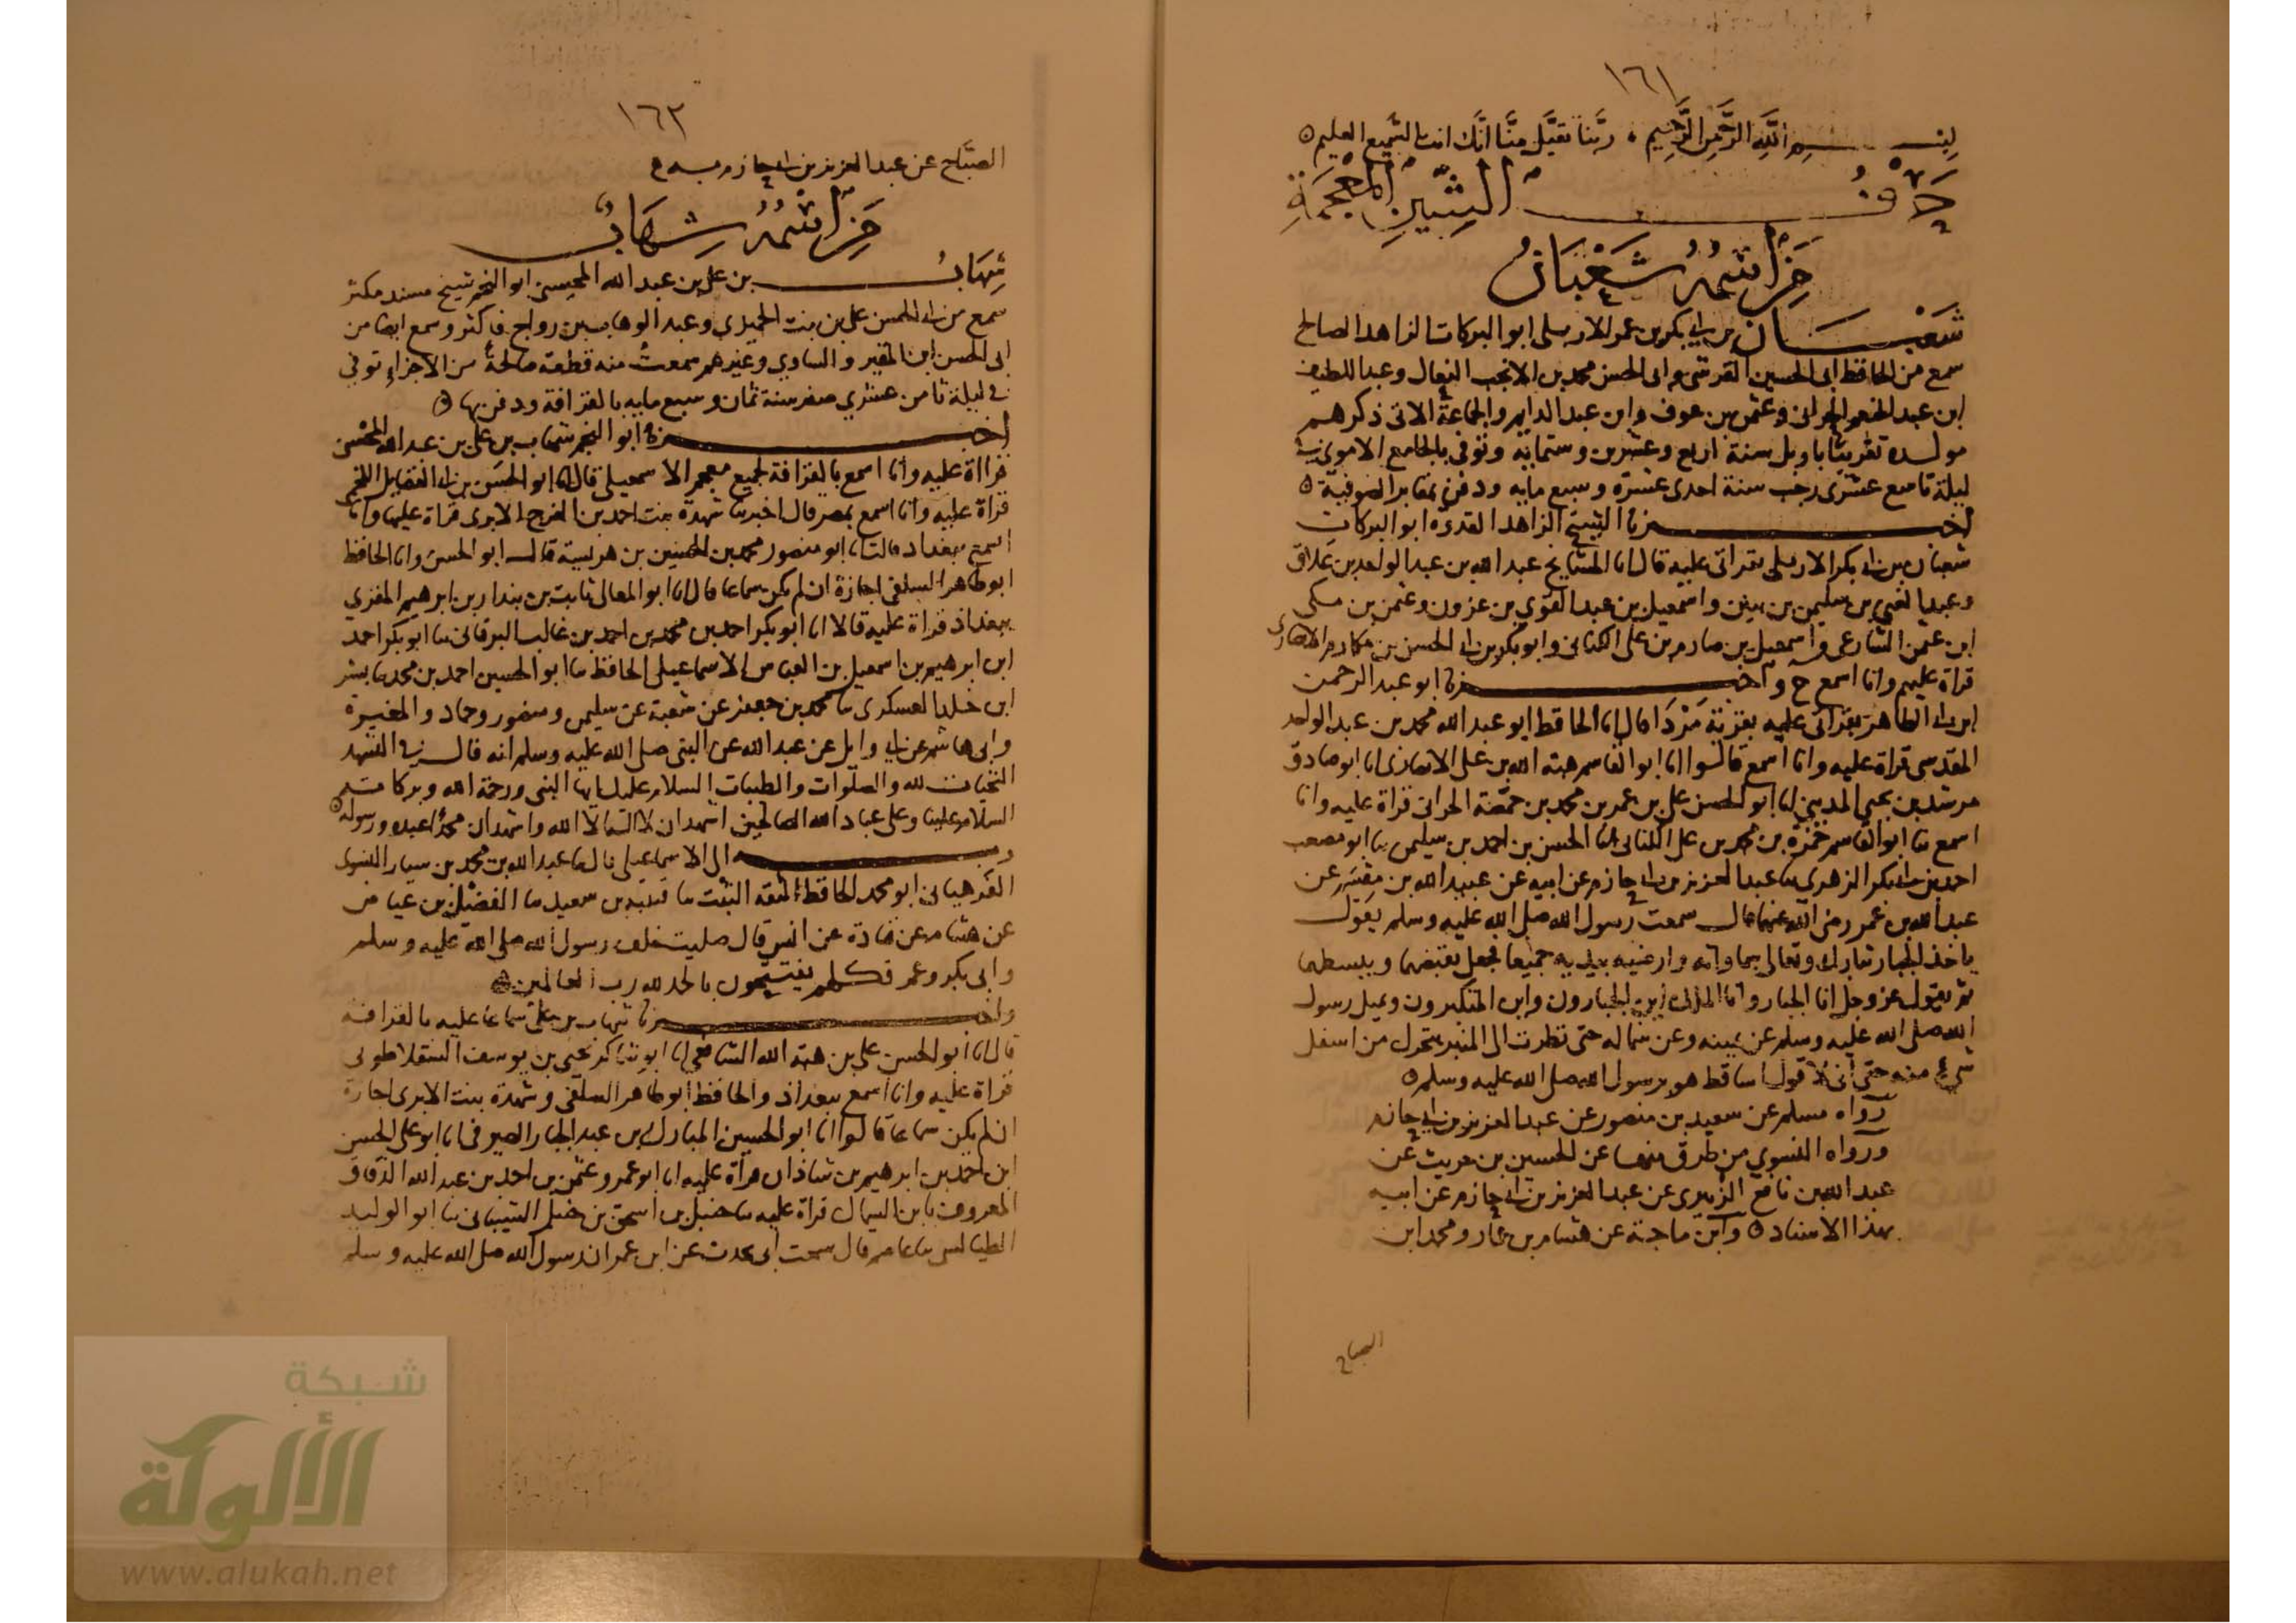 ١٦١
بسم الله الرحمن الرحيم ، ربنا تقبل منا انك انت السميع العليم
حرف الشين المعجمة
من اسمه شعبان
شعبان بن ابي بكر بن عمر الاربلي ابو البركات الزاهد الصالح
سمع من الحافظ ابي الحسين القرشي وابي الحسن محمد بن الانجب النعال وعبد اللطيف
ابن عبد المنعم الحراني وعثمن بن عوف وابن عبد الدايم والجماعة الاتي ذكرهم
مولده تقريبا باربل سنة اربع وعشرين وستمايه وتوفي بالجامع الاموي
ليلة تاسع عشري رجب سنة احدى عشرة وسبع مايه ودفن بمقابر الصوفية
اخبرنا الشيخ الزاهد القدوه ابو البركات
شعبان بن ابي بكر الاربلي بقراتي عليه قال انا المشايخ عبد الله بن عبد الواحد بن علاق
وعبد الغني بن سليمن بن بنين واسمعيل بن عبد القوي بن عزون وعثمن بن مكي
ابن عثمن الشارعي واسمعيل بن صارم بن علي الكناني وابو بكر بن ابي الحسن بن مكارم الانصاري
قراة عليهم وانا اسمع ح واخبرنا ابو عبد الرحمن
ابن ابي الطاهر بقراتي عليه بقرية مردا قال انا الحافظ ابو عبد الله محمد بن عبد الواحد
المقدسي قراة عليه وانا اسمع قالوا انا ابو القاسم هبة الله بن علي الانصاري انا ابو صادق
مرشد بن يحيى المديني انا ابو الحسن علي بن عمر بن محمد بن حمصة الحراني قراة عليه وانا
اسمع نا ابو القاسم حمزة بن محمد بن علي الكناني انا الحسن بن احمد بن سليمن نا ابو مصعب
احمد بن ابي بكر الزهري نا عبد العزيز بن ابي حازم عن ابيه عن عبيد الله بن مقسم عن
عبد الله بن عمر رضي الله عنهما قال سمعت رسول الله صلى الله عليه وسلم يقول
ياخذ الجبار تبارك وتعالى سماواته وارضيه بيديه جميعا فجعل يقبضهما ويبسطهما
ثم يقول عز وجل انا الجبار وانا الملك اين الجبارون واين المتكبرون ويميل رسول
الله صلى الله عليه وسلم عن يمينه وعن شماله حتى نظرت الى المنبر يتحرك من اسفل
شيء منه حتى اني لاقول اساقط هو برسول الله صلى الله عليه وسلم
رواه مسلم عن سعيد بن منصور عن عبد العزيز بن ابي حازم
ورواه النسوي من طرق منها عن الحسين بن حريث عن
عبد الله بن نافع الزبيري عن عبد العزيز بن ابي حازم عن ابيه
بهذا الاسناد وابن ماجة عن هشام بن عمار ومحمد ابن
الصباح
١٦٢
الصباح عن عبد العزيز بن ابي حازم به
من اسمه شهاب
شهاب بن علي بن عبد الله المحسني ابو النجم شيخ مسند مكثر
سمع من ابي الحسن علي بن بنت الجميزي وعبد الوهاب بن رواج فاكثر وسمع ايضا من
ابي الحسن ابن المقير والساوي وغيرهم سمعت منه قطعة صالحة من الاجزاء توفي
في ليلة ثامن عشري صفر سنة ثمان وسبع مايه بالقرافة ودفن بها
اخبرنا ابو النجم شهاب بن علي بن عبد الله المحسني
قراة عليه وانا اسمع بالقرافة لجميع معجم الاسمعيلي قال انا ابو الحسن بن ابي الفضايل اللخمي
قراة عليه وانا اسمع بمصر قال اخبرتنا شهدة بنت احمد بن الفرج الابري قراة عليها وانا
اسمع ببغداد قالت انا ابو منصور محمد بن الحسين بن هريسة قال ابو الحسن وانا الحافظ
ابو طاهر السلفي اجازة ان لم يكن سماعا قال انا ابو المعالي ثابت بن بندار بن ابرهيم المقري
ببغداد قراة عليه قالا انا ابو بكر احمد بن محمد بن احمد بن غالب البرقاني نا ابو بكر احمد
ابن ابرهيم بن اسمعيل بن العباس الاسماعيلي الحافظ نا ابو الحسين احمد بن محمد نا بشر
ابن خالد العسكري نا محمد بن جعفر عن شعبة عن سليمن ومنصور وحماد والمغيرة
وابي هاشم عن ابي وايل عن عبد الله عن النبي صلى الله عليه وسلم انه قال في التشهد
التحيات لله والصلوات والطيبات السلام عليك ايها النبي ورحمة الله وبركاته
السلام علينا وعلى عباد الله الصالحين اشهد ان لا اله الا الله واشهد ان محمدا عبده ورسوله
وبه الى الاسماعيلي قال نا عبد الله بن محمد بن سيار النسوي
الفرهياني ابو محمد الحافظ الثقه الثبت نا قتيبة بن سعيد نا الفضيل بن عياض
عن هشام عن قتادة عن انس قال صليت خلف رسول الله صلى الله عليه وسلم
وابي بكر وعمر فكلهم يفتتحون بالحمد لله رب العالمين
واخبرنا شهاب بن علي سماعا عليه بالقرافة
قال انا ابو الحسن علي بن هبة الله الشافعي انا ابو شاكر يحيى بن يوسف السقلاطوني
قراة عليه وانا اسمع ببغداد والحافظ ابو طاهر السلفي وشهدة بنت الابري اجازة
ان لم يكن سماعا قالوا انا ابو الحسين المبارك بن عبد الجبار الصيرفي انا ابو علي الحسن
ابن احمد بن ابرهيم بن شاذان قراة عليه انا ابو عمرو عثمن بن احمد بن عبد الله الدقاق
المعروف بابن السماك قراة عليه نا حنبل بن اسحق بن حنبل الشيباني نا ابو الوليد
الطيالسي نا عاصم قال سمعت ابي يحدث عن ابن عمر ان رسول الله صلى الله عليه وسلم
شبكة
الألوكة
www.alukah.net